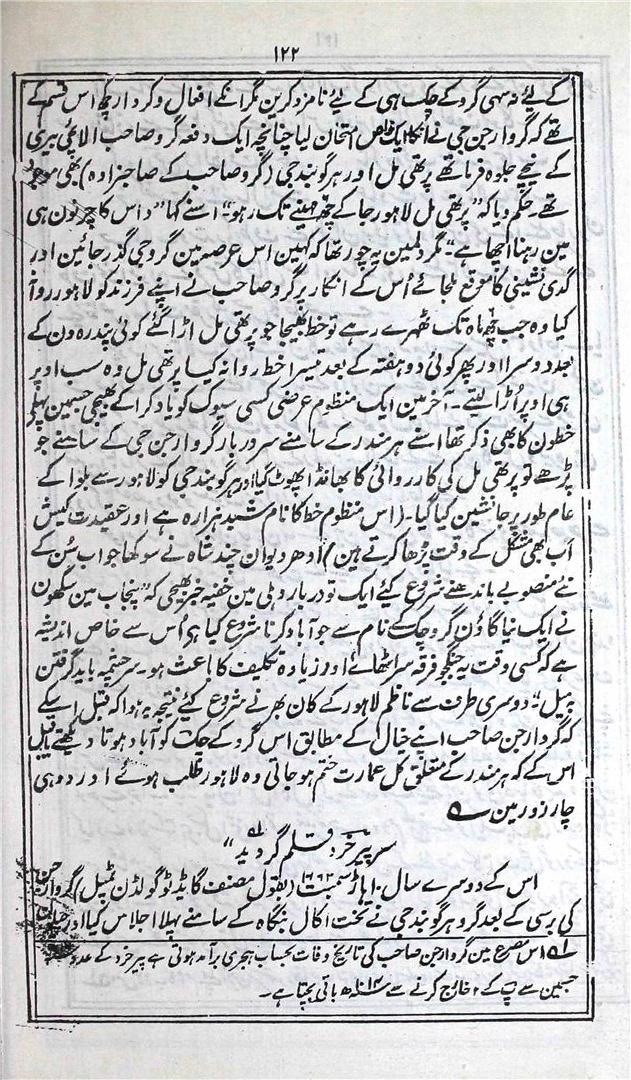 ۱۲۲
کے لئے نہ سہی گرو کے چک ہی کے لئے نامزد کرین گر انکے افعال و کردار کچھ اس قسم کے
تھے کہ گرو ارجن جی نے انکا ایک خاص امتحان لیا چنانچہ ایک دفعہ گرو صاحب الاچی بیری
کے نیچے جلوہ فرما تھے پرتھی مل اور ہرگوبند جی (گرو صاحب کے صاحبزادہ) بھی موجود
تھے۔ حکم دیا کہ "پرتھی مل لاہور جا کے چھ مہینے تک رہو" اسنے کہا "داس کا چرنون ہی
مین رہنا اچھا ہے"۔ گر دلمین یہ چور تھا کہ کہین اس عرصہ مین گرو جی گذر جائین اور
گدی نشینی کا موقع ملجائے اُس کے انکار پر گرو صاحب نے اپنے فرزند کو لاہور روانہ
کیا وہ جب چھ ماہ تک ٹھہرے رہے تو خط بھیجا جو پرتھی مل اڑا گئے کوئی پندرہ دن کے
بعد دوسرا اور پھر کوئی دو ہفتہ کے بعد تیسرا خط روانہ کیا پرتھی مل وہ سب اوپر
ہی اوپر اُڑا لیتے۔ آخر مین ایک منظوم عرضی کسی سیوک کو یاد کرا کے بھیجی جسمین پہلے
خطون کا بھی ذکر تھا اسنے ہرمندر کے سامنے سر دربار گرو ارجن جی کے سامنے جو
پڑھے تو پرتھی مل کی کارروائی کا بھانڈا پھوٹ گیا اور ہرگوبند جی کو لاہور سے بلوا کے
عام طور پر جانشین کیا گیا۔ (اس منظوم خط کا نام شبد ہزارہ ہے اور عقیدت کیش
اب بھی مشکل کے وقت پڑھا کرتے ہین) اُدھر دیوان چند شاہ نے سوکھا جواب سُن کے
نئے منصوبے باندھنے شروع کئے ایک تو دربار دہلی مین خفیہ خبر بھیجی کہ "پنجاب مین سکھون
نے ایک نیا گاؤن گرو چک کے نام سے جو آباد کرنا شروع کیا ہے اُس سے خاص اندیشہ
ہے کہ کسی وقت یہ جنگجو فرقہ سر اٹھائے اور زیادہ تکلیف کا باعث ہو۔ سر چشمہ باید گرفتن
بہ بیل"۔ دوسری طرف سے ناظم لاہور کے کان بھرنے شروع کئے نتیجہ یہ ہوا کہ قبل اسکے
کہ گرو ارجن صاحب اپنے خیال کے مطابق اس گرو کے چک کو آباد ہوتا دیکھتے یا قبل
اس کے کہ ہرمندر کے متعلق کل عمارت ختم ہو جاتی وہ لاہور طلب ہوئے اور دو ہی
چار روز مین ؎
سر پیر خرد قلم گردید ؎۱ "
اس کے دوسرے سال ۱۰ اہاڑ سمبت ۱۶۶۳ (بقول مصنف گائیڈ ٹو گولڈن ٹمپل) گرو ارجن
کی برسی کے بعد گرو ہرگوبند جی نے تخت اکال بنگاہ کے سامنے پہلا اجلاس کیا اور
؎۱ اس مصرع مین گرو ارجن صاحب کی تاریخ وفات بحساب ہجری برآمد ہوتی ہے پیر خرد کے عدد
جسمین سے پ کے ۲ خارج کرنے سے ۱۰۱۴ھ باقی بچتا ہے۔